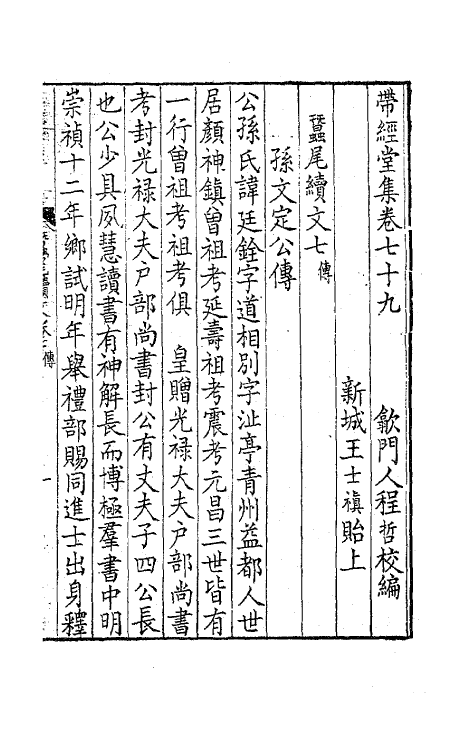 帶經堂集卷七十九　　歙門人程哲校編
新城王士禛貽上
蠶尾續文七傳
孫文定公傳
公孫氏諱廷銓字道相別字沚亭青州益都人世
居顏神鎮曾祖考延壽祖考震考元昌三世皆有
一行曾祖考祖考俱　皇贈光祿大夫戶部尚書
考封光祿大夫戶部尚書封公有丈夫子四公長
也公少具夙慧讀書有神解長而博極羣書中明
崇禎十二年鄉試明年舉禮部賜同進士出身釋